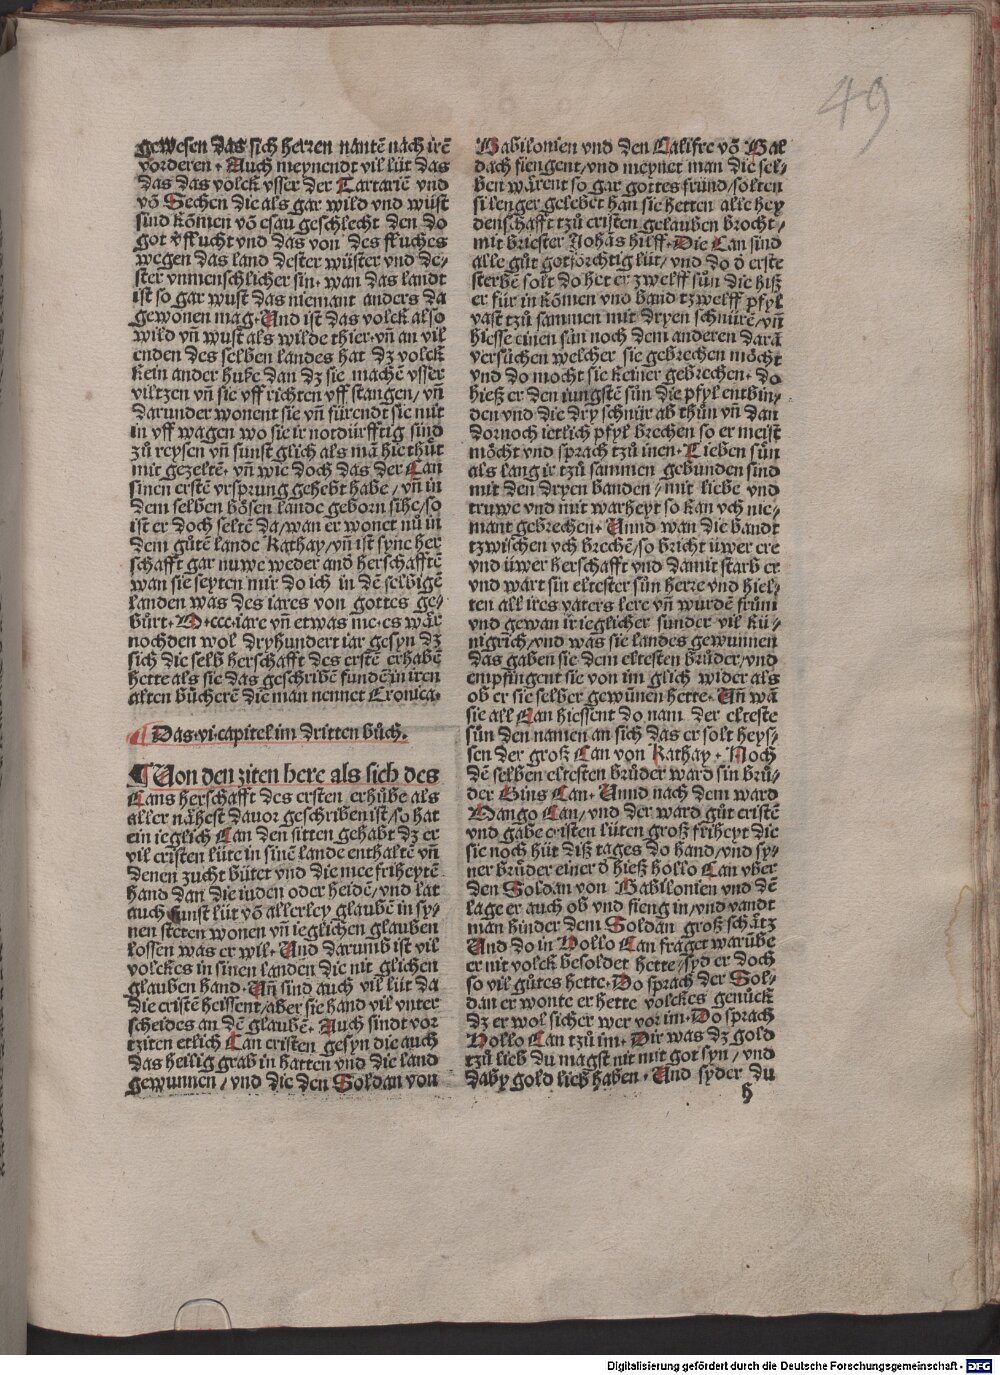 49
gewesen das sich herren nantē nach irē
vorderen. Auch meynendt vil lüt das
das das volck vsser der Tartariē vnd
vō Sechen die als gar wild vnd wüst
sind kōmen vō esau geschlecht den do
got v̄flucht vnd das von des fluches
wegen das land dester wüster vnd de/
ster vnmenschlicher sin. wan das landt
ist so gar wust das niemant anders da
gewonen mag. Und ist das volck also
wild vn̄ wust als wilde thier. vn̄ an vil
enden des selben landes hat dz volck
kein ander huße dan dz sie machē vsser
viltzen vn̄ sie vff richten vff stangen/ vn̄
darunder wonent sie vn̄ fürendt sie mit
in vff wagen wo sie ir notdürfftig sind
zů reysen vn̄ sunst glich als mā hie thůt
mit gezeltē. vn̄ wie doch das der Can
sinen erstē vrsprung gehebt habe/ vn̄ in
dem selben bösen lande geborn sihe/ so
ist er doch seltē da/ wan er wonet nů in
dem gůtē lande Kathay/ vn̄ ist syne her
schafft gar nuwe weder and̄ herschafftē
wan sie seyten mir do ich in dē selbigē
landen was des iares von gottes ge/
bürt. M. ccc. iare vn̄ etwas me. es wär
nochden wol dryhundert iar gesyn dz
sich die selb herschafft des erstē erhabē
hette als sie das geschribē fundē in iren
alten bücherē die man nennet Cronica.
Das. vi. capitel im dritten bůch.
Von den ziten here als sich des
Cans herschafft des ersten erhübe als
aller nähest dauor geschriben ist/ so hat
ein ieglich Can den sitten gehabt dz er
vil cristen lüte in sinē lande enthaltē vn̄
denen zucht bütet vnd die mee friheytē
hand dan die iuden oder heidē/ vnd lat
auch sunst lüt vō allerley glaubē in sy/
nen steten wonen vn̄ ieglichen glauben
lossen was er wil. Und darumb ist vil
volckes in sinen landen die nit glichen
glauben hand. Un̄ sind auch vil lüt da
die cristē heissent/ aber sie hand vil vnter
scheides an dē glaubē. Auch sindt vor
tziten etlich Can cristen gesyn die auch
das heilig grab in hatten vnd die land
gewunnen/ vnd die den Soldan von
Babilonien vnd den Califre vō Bal
dach fiengent/ vnd meynet man die sel/
ben wärent so gar gottes fründ/ solten
si lenger gelebet han sie hetten alle hey
denschafft tzů cristen gelauben brocht/
mit briester Johās hilff. Die Can sind
alle gůt gotförchtig lüt/ vnd do d̄ erste
sterbē solt do het er zwelff sün die hiß
er für in kōmen vnd band tzwelff pfyl
vast tzů sammen mit dryen schnürē/ vn̄
hiesse einen sün noch dem anderen darā
versůchen welcher sie gebrechen möcht
vnd do mocht sie keiner gebrechen. do
hieß er den iungstē sün die pfyl entbin/
den vnd die dry schnür ab thůn vn̄ dan
dornoch ietlich pfyl brechen so er meist
möcht vnd sprach tzů inen. Lieben sün
als lang ir tzů sammen gebunden sind
mit den dryen banden/ mit liebe vnd
truwe vnd mit warheyt so kan vch nie/
mant gebrechen. Unnd wan die bandt
tzwischen vch brechē/ so bricht üwer ere
vnd üwer herschafft vnd damit starb er
vnd wart sin eltester sün herre vnd hiel/
ten all ires vaters lere vn̄ wurdē frům
vnd gewan ir ieglicher sunder vil kü/
nigrich/ vnd was sie landes gewunnen
das gaben sie dem eltesten brůder/ vnd
empfingent sie von im glich wider als
ob er sie selber gewūnen hette. Un̄ wā
sie all Can hiessent do nam der elteste
sün den namen an sich das er solt heys/
sen der groß Can von Kathay. Noch
dē selben eltesten brůder ward sin brů/
der Gins Can. Unnd nach dem ward
Mango Can/ vnd der ward gůt cristē
vnd gabe cristen lüten groß friheyt die
sie noch hüt diß tages do hand/ vnd sy/
ner brůder einer d̄ hieß hollo Can vber
den Soldan von Babilonien vnd dē
lage er auch ob vnd fieng in/ vnd vandt
man hinder dem Soldan groß schätz
Und do in Hollo Can fraget warūbe
er nit volck besoldet hette/ syd er doch
so vil gůtes hette. Do sprach der Sol/
dan er wonte er hette volckes genůck
dz er wol sicher wer vor im. Do sprach
Hollo Can tzů im. Dir was dz gold
tzů lieb du magst nit mit got syn/ vnd
daby gold lieb haben. Und syder du
h
Digitalisierung gefördert durch die Deutsche Forschungsgemeinschaft - DFG